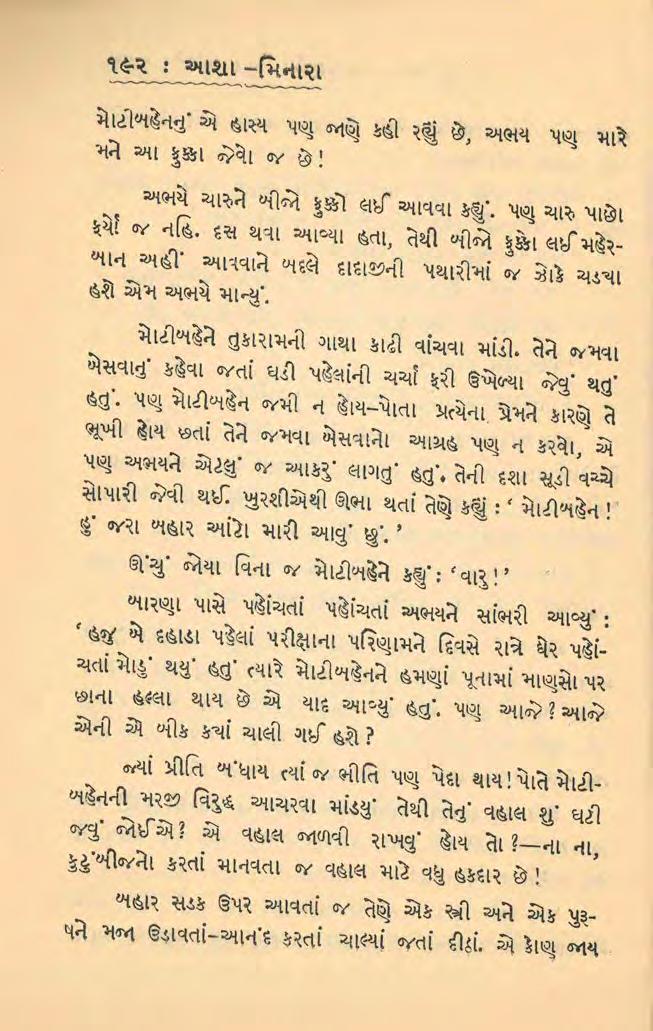 ૧૯૨ : આશા –મિનારા
મોટીબહેનનું એ હાસ્ય પણ જાણે કહી રહ્યું છે, અભય પણ મારે
મને આ ફુક્કા જેવો જ છે!
અભયે ચારુને બીજો ફુક્કો લઈ આવવા કહ્યું. પણ ચારુ પાછો
ફર્યો જ નહિ. દસ થવા આવ્યા હતા, તેથી બીજો ફુક્કો લઈ મહેર-
બાન અહીં આવવાને બદલે દાદાજીની પથારીમાં જ ઝોકે ચડ્યા
હશે એમ અભયે માન્યું.
મોટીબહેને તુકારામની ગાથા કાઢી વાંચવા માંડી. તેને જમવા
બેસવાનું કહેવા જતાં ઘડી પહેલાંની ચર્ચા ફરી ઉખેળ્યા જેવું થતું
હતું. પણ મોટીબહેન જમી ન હોય–પોતા પ્રત્યેના પ્રેમને કારણે તે
ભૂખી હોય છતાં તેને જમવા બેસવાનો આગ્રહ પણ ન કરવો, એ
પણ અભયને એટલું જ આકરું લાગતું હતું. તેની દશા સૂડી વચ્ચે
સોપારી જેવી થઈ. ખુરશીએથી ઊભા થતાં તેણે કહ્યું : ‘ મોટીબહેન !
હું જરા બહાર આંટો મારી આવું છું. ’
ઊંચું જોયા વિના જ મોટીબહેને કહ્યું : ‘વારુ !’
બારણા પાસે પહોંચતાં પહોંચતાં અભયને સાંભરી આવ્યું :
‘ હજુ બે દહાડા પહેલાં પરીક્ષાના પરિણામને દિવસે રાત્રે ઘેર પહોં-
ચતાં મોડું થયું હતું ત્યારે મોટીબહેનને હમણાં પૂનામાં માણસો પર
છાના હલ્લા થાય છે એ યાદ આવ્યું હતું. પણ આજે ? આજે
એની એ બીક ક્યાં ચાલી ગઈ હશે ?
જ્યાં પ્રીતિ બંધાય ત્યાં જ ભીતિ પણ પેદા થાય! પોતે મોટી-
બહેનની મરજી વિરુદ્ધ આચરવા માંડયું તેથી તેનું વહાલ શું ઘટી
જવું જોઈએ? એ વહાલ જાળવી રાખવું હોય તો ?—ના ના,
કુટુંબીજનો કરતાં માનવતા જ વહાલ માટે વધુ હકદાર છે !
બહાર સડક ઉપર આવતાં જ તેણે એક સ્ત્રી અને એક પુરૂ-
ષને મજા ઉડાવતાં–આનંદ કરતાં ચાલ્યાં જતાં દીઠાં. એ કોણ જાય